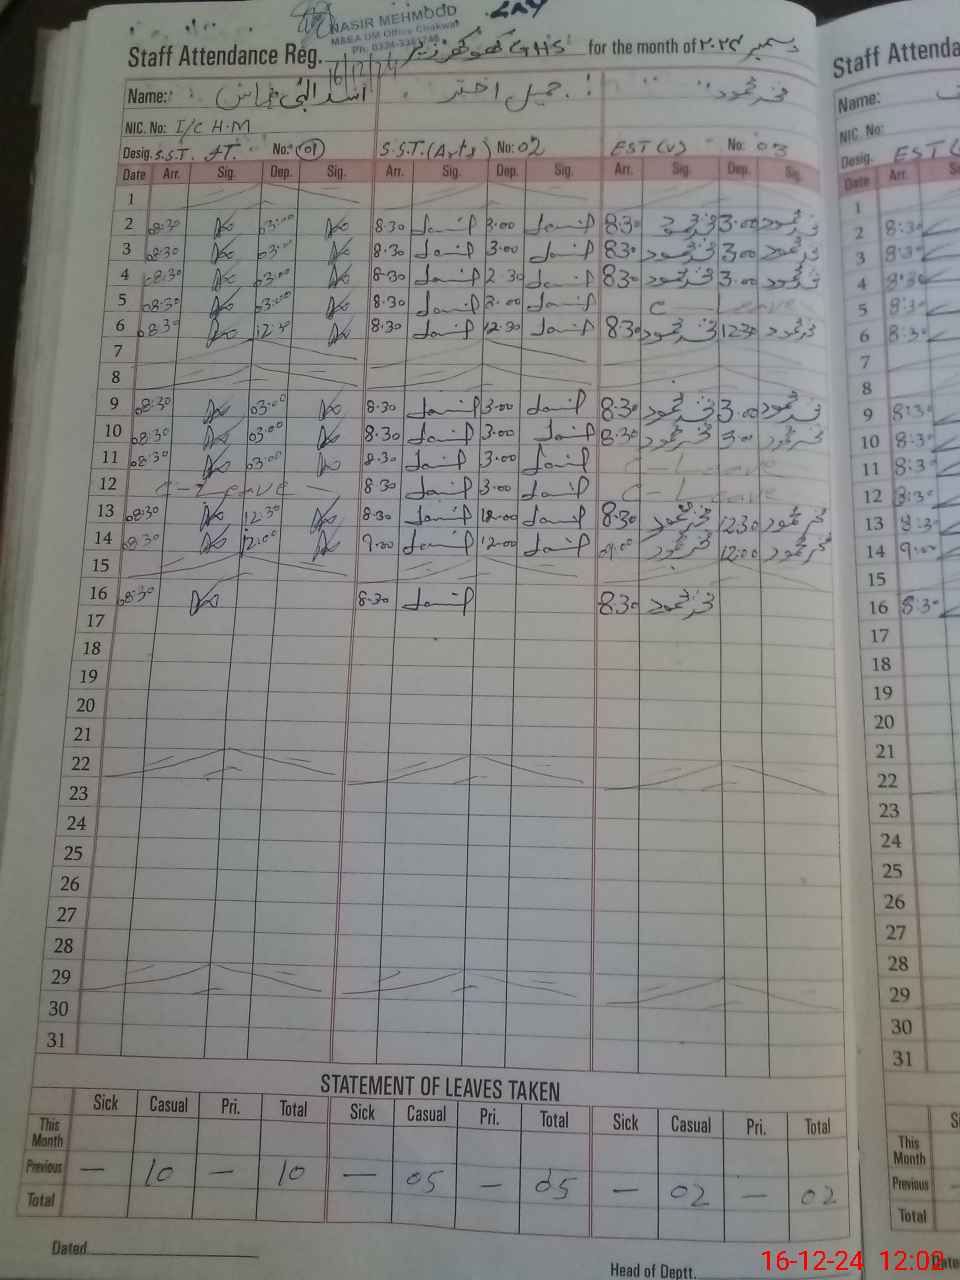 NASIR MEHMOOD
M&EA UM Office Chakwal
16/12/24
Staff Attendance Reg. GHS for the month of دسمبر ۲۰۲۴
Name: جمیل اختر فخر محمود
NIC. No: I/C H.M
Desig. S.S.T. No: 01 S.S.T. (Arts) No: 02 EST (V) No: 03
Date Arr. Sig. Dep. Sig. Arr. Sig. Dep. Sig. Arr. Sig. Dep. Sig.
1
2 08:30 03:00 8.30 Jamil 3.00 Jamil 8:30 فخر محمود 3.00 فخر محمود
3 08:30 03:00 8.30 Jamil 3.00 Jamil 8:30 فخر محمود 3.00 فخر محمود
4 08:30 03:00 8.30 Jamil 2.30 Jamil 8:30 فخر محمود 3.00 فخر محمود
5 08:30 03:00 8.30 Jamil 3.00 Jamil C Leave
6 08:30 8.30 Jamil 12.30 Jamil 8:30 فخر محمود 12:30 فخر محمود
7
8
9 08:30 03:00 8.30 Jamil 3.00 Jamil 8:30 فخر محمود 3.00 فخر محمود
10 08:30 03:00 8.30 Jamil 3.00 Jamil 8:30 فخر محمود 3.00 فخر محمود
11 08:30 03:00 8.30 Jamil 3.00 Jamil C - Leave
12 C - Leave 8.30 Jamil 3.00 Jamil C - Leave
13 08:30 12:30 8.30 Jamil 12.00 Jamil 8:30 فخر محمود 12:30 فخر محمود
14 08:30 12:00 9.00 Jamil 12.00 Jamil 09:00 فخر محمود 12:00 فخر محمود
15
16 08:30 8.30 Jamil 8:30 فخر محمود
17
18
19
20
21
22
23
24
25
26
27
28
29
30
31
STATEMENT OF LEAVES TAKEN
Sick Casual Pri. Total Sick Casual Pri. Total Sick Casual Pri. Total
This Month
Previous — 10 — 10 — 05 — 05 — 02 — 02
Total
Dated
Head of Deptt.
Staff Attenda
Name:
NIC. No:
Desig. EST
Date Arr.
1
2 8:30
3 8:30
4 8:30
5 8:30
6 8:30
7
8
9 8:30
10 8:30
11 8:30
12 8:30
13 8:30
14 9:00
15
16 8:30
17
18
19
20
21
22
23
24
25
26
27
28
29
30
31
This Month
Previous
Total
16-12-24 12:02